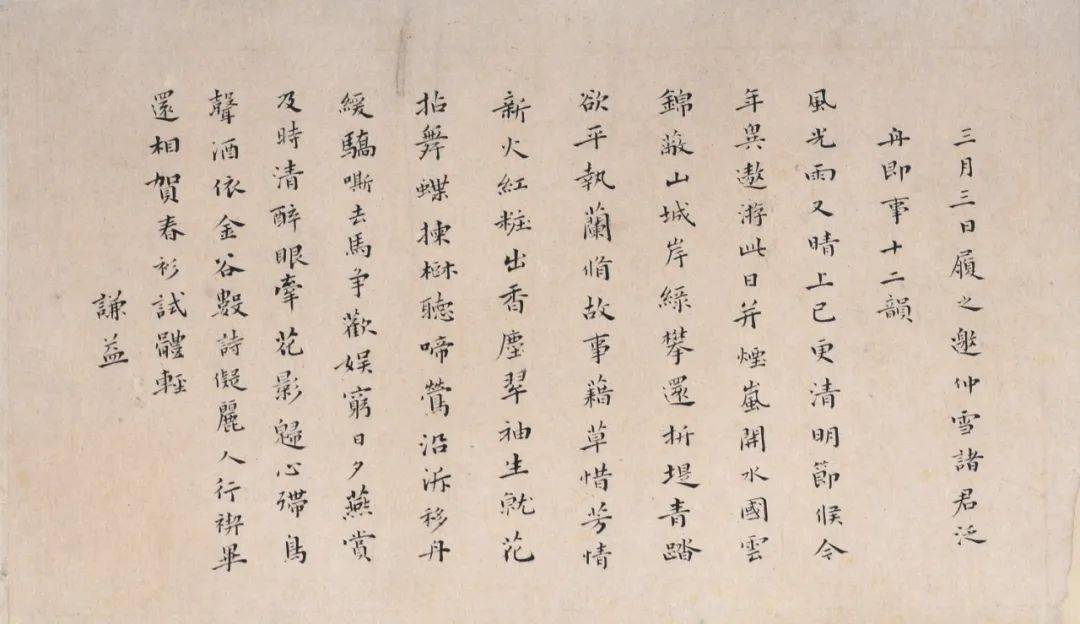 三月三日履之邀仲雪諸君泛
舟即事十二韻
風光雨又晴上巳更清明節候今
年異遨游此日并煙嵐開水國雲
錦蔽山城岸綠攀還折堤青踏
欲平執蘭脩故事藉草惜芳情
新火紅粧出香塵翠袖生就花
拈舞蝶揀樹聽啼鶯沿泝移舟
緩驕嘶去馬爭歡娛窮日夕燕賞
及時清醉眼牽花影歸心殢鳥
聲酒依金谷數詩儗麗人行禊畢
還相賀春衫試體輕
謙益